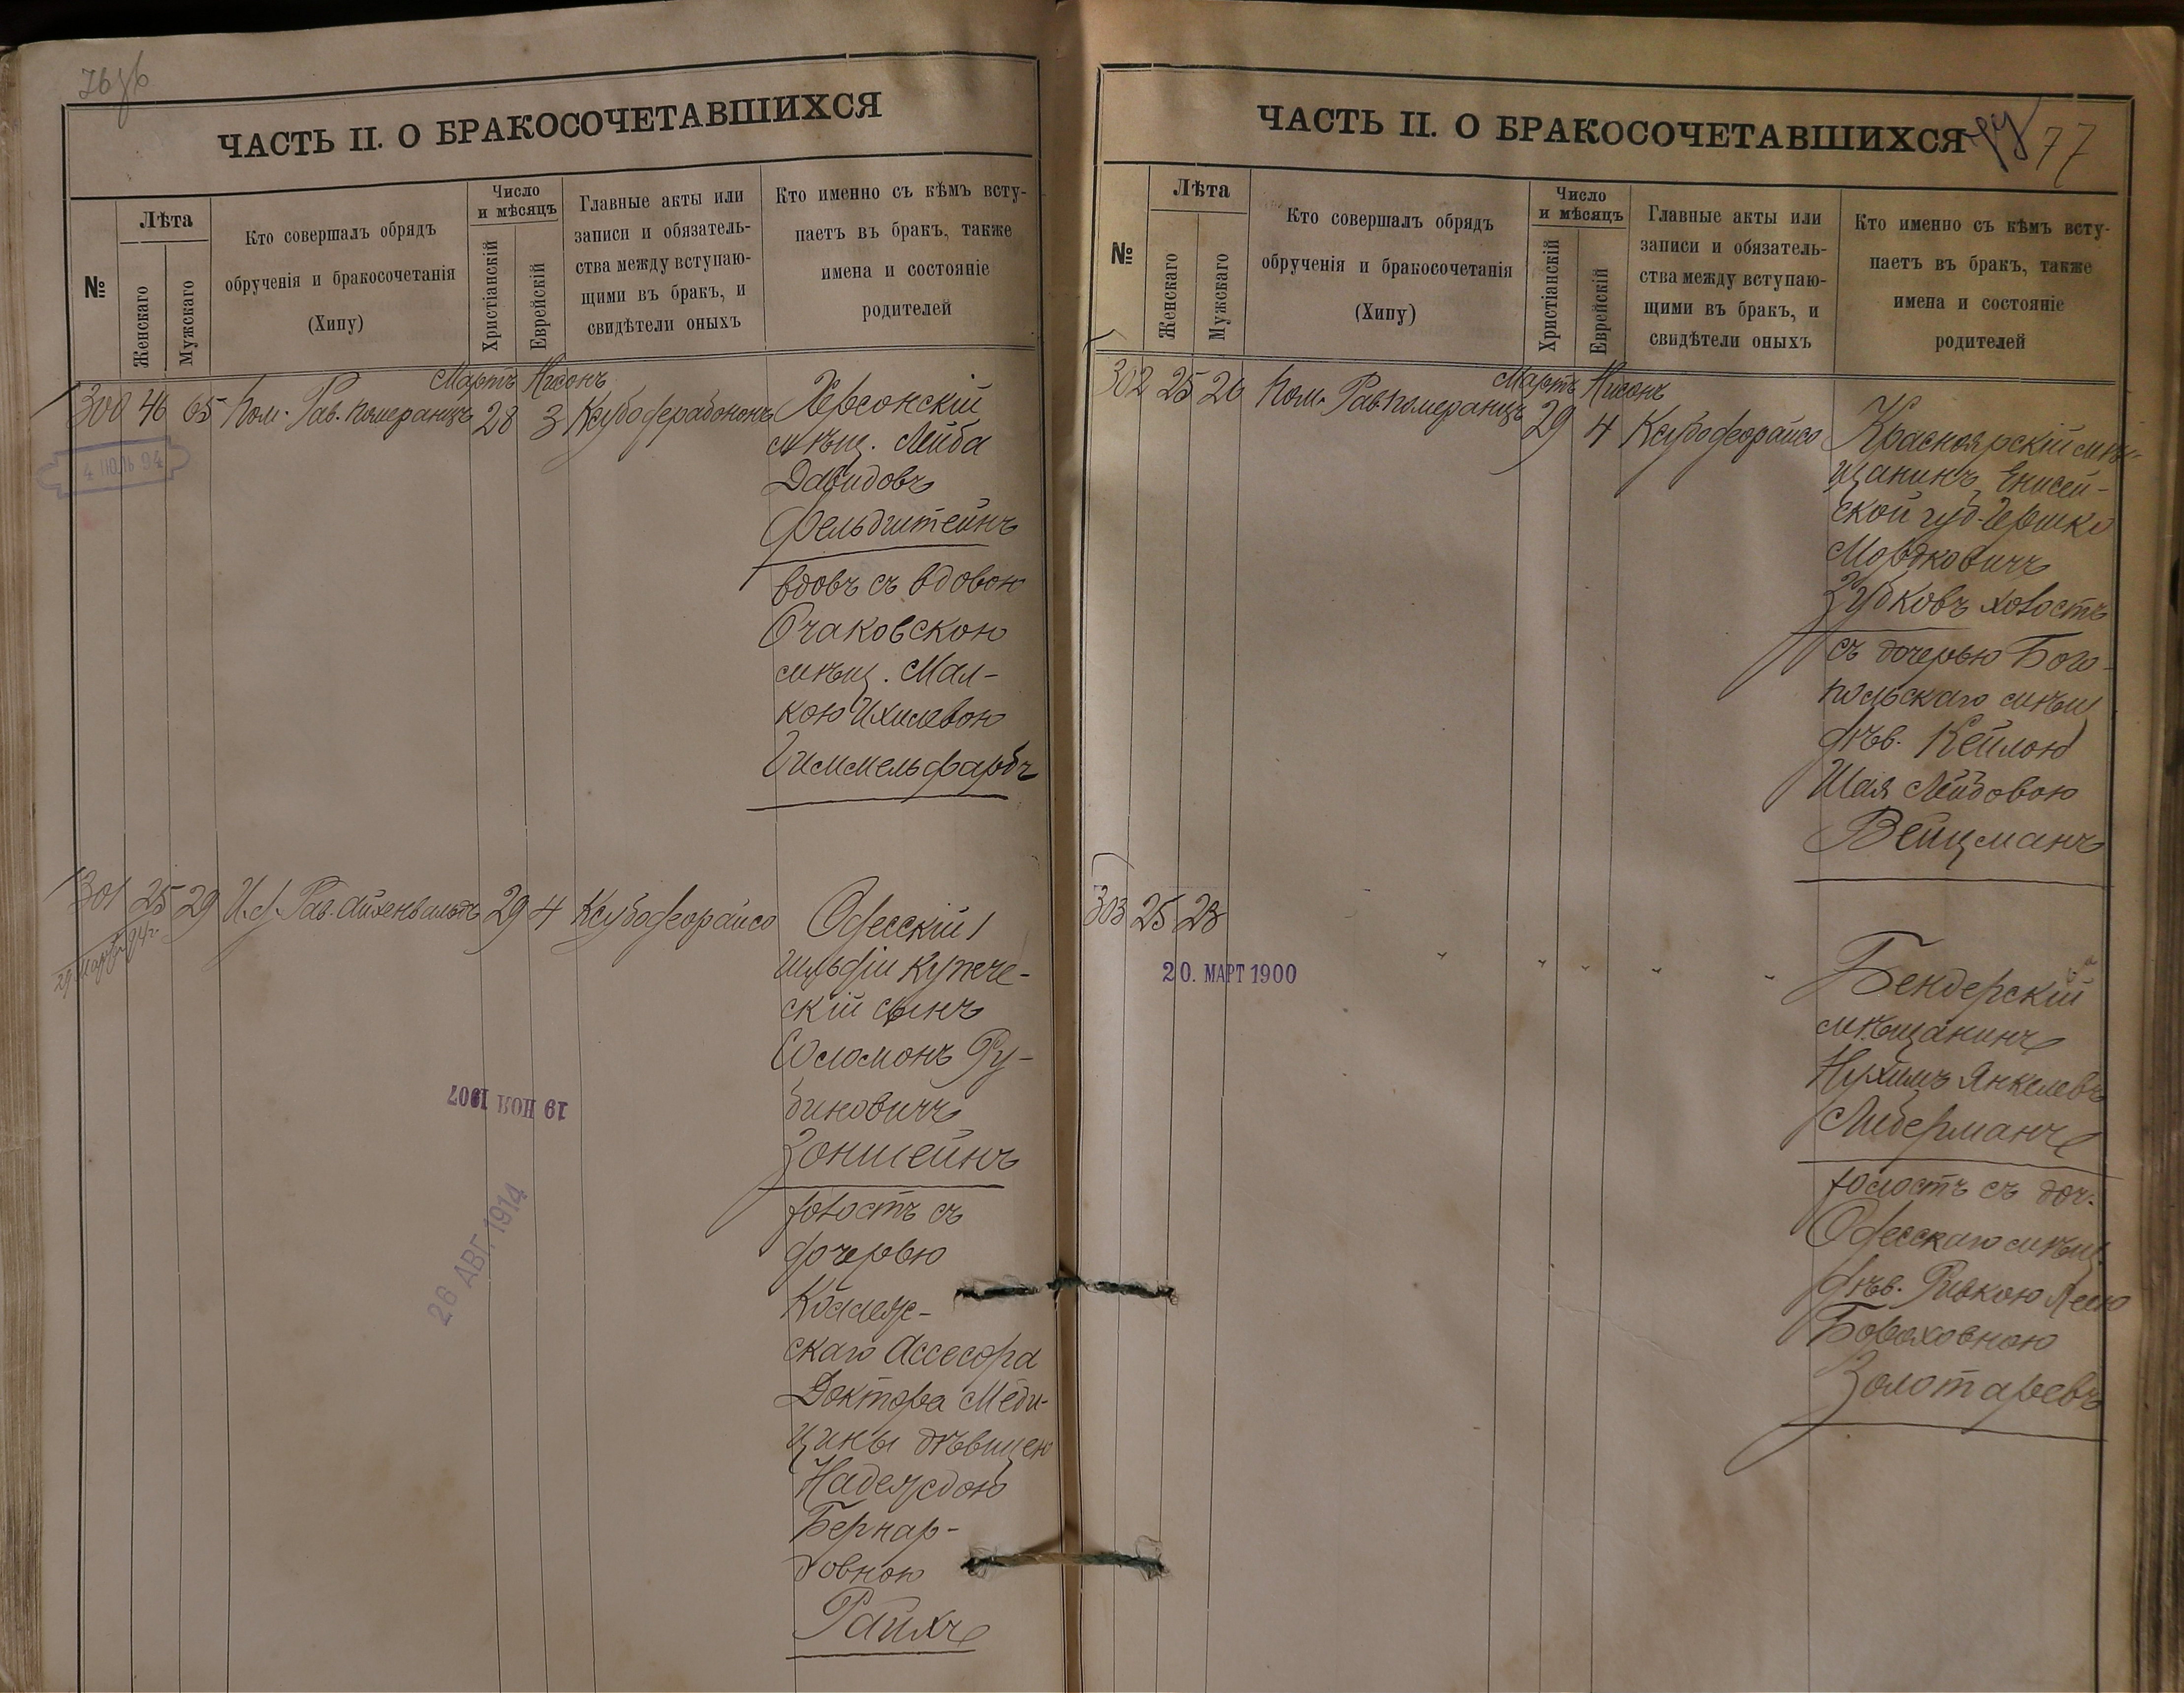 76 об
ЧАСТЬ II. О БРАКОСОЧЕТАВШИХСЯ
№
Лѣта
Женскаго
Мужскаго
Кто совершалъ обрядъ
обрученія и бракосочетанія
(Хипу)
Число
и мѣсяцъ
Христіанскій
Еврейскій
Главные акты или
записи и обязатель-
ства между вступаю-
щими въ бракъ, и
свидѣтели оныхъ
Кто именно съ кѣмъ всту-
паетъ въ бракъ, также
имена и состояніе
родителей
Мартъ Нисонъ
300 46 65 Пом. Рав. Померанцъ 28 3 Ксубодерабононъ
4 ІЮЛЬ 94
Херсонскій
мѣщ. Лейба
Давидовъ
Фельдштейнъ
вдовъ съ вдовою
Очаковскою
мѣщ. Мал-
кою Ихилевою
Гиммельфарбъ
301 25 29 И. д. Рав. Айхенвальдъ 29 4 Ксубодеорайсо
29 Марта 94 г.
Одесскій 1
гильдіи купече-
скій сынъ
Соломонъ Ру-
биновичъ
Зонштейнъ
холостъ съ
дочерью
Коллеж-
скаго Ассесора
Доктора Меди-
цины дѣвицею
Надеждою
Бернар-
довною
Райхъ
19 НОЯ 1907
26 АВГ. 1914
ЧАСТЬ II. О БРАКОСОЧЕТАВШИХСЯ
77
№
Лѣта
Женскаго
Мужскаго
Кто совершалъ обрядъ
обрученія и бракосочетанія
(Хипу)
Число
и мѣсяцъ
Христіанскій
Еврейскій
Главные акты или
записи и обязатель-
ства между вступаю-
щими въ бракъ, и
свидѣтели оныхъ
Кто именно съ кѣмъ всту-
паетъ въ бракъ, также
имена и состояніе
родителей
Мартъ Нисонъ
302 25 26 Пом. Рав Померанцъ 29 4 Ксубодеорайсо
Красноярскій мѣ-
щанинъ Енисей-
ской губ. Гершко
Мордковичъ
Зубковъ холостъ
съ дочерью Бого-
польскаго мѣщ
дѣв. Кейлою
Шая Лейбовою
Вейцманъ
303 25 23
20. МАРТ 1900
Бендерскій
мѣщанинъ
Нухимъ Янкелевъ
Либерманъ
холостъ съ доч.
Одесскаго мѣщ.
дѣв. Ривкою Леею
Боруховною
Золотаревъ